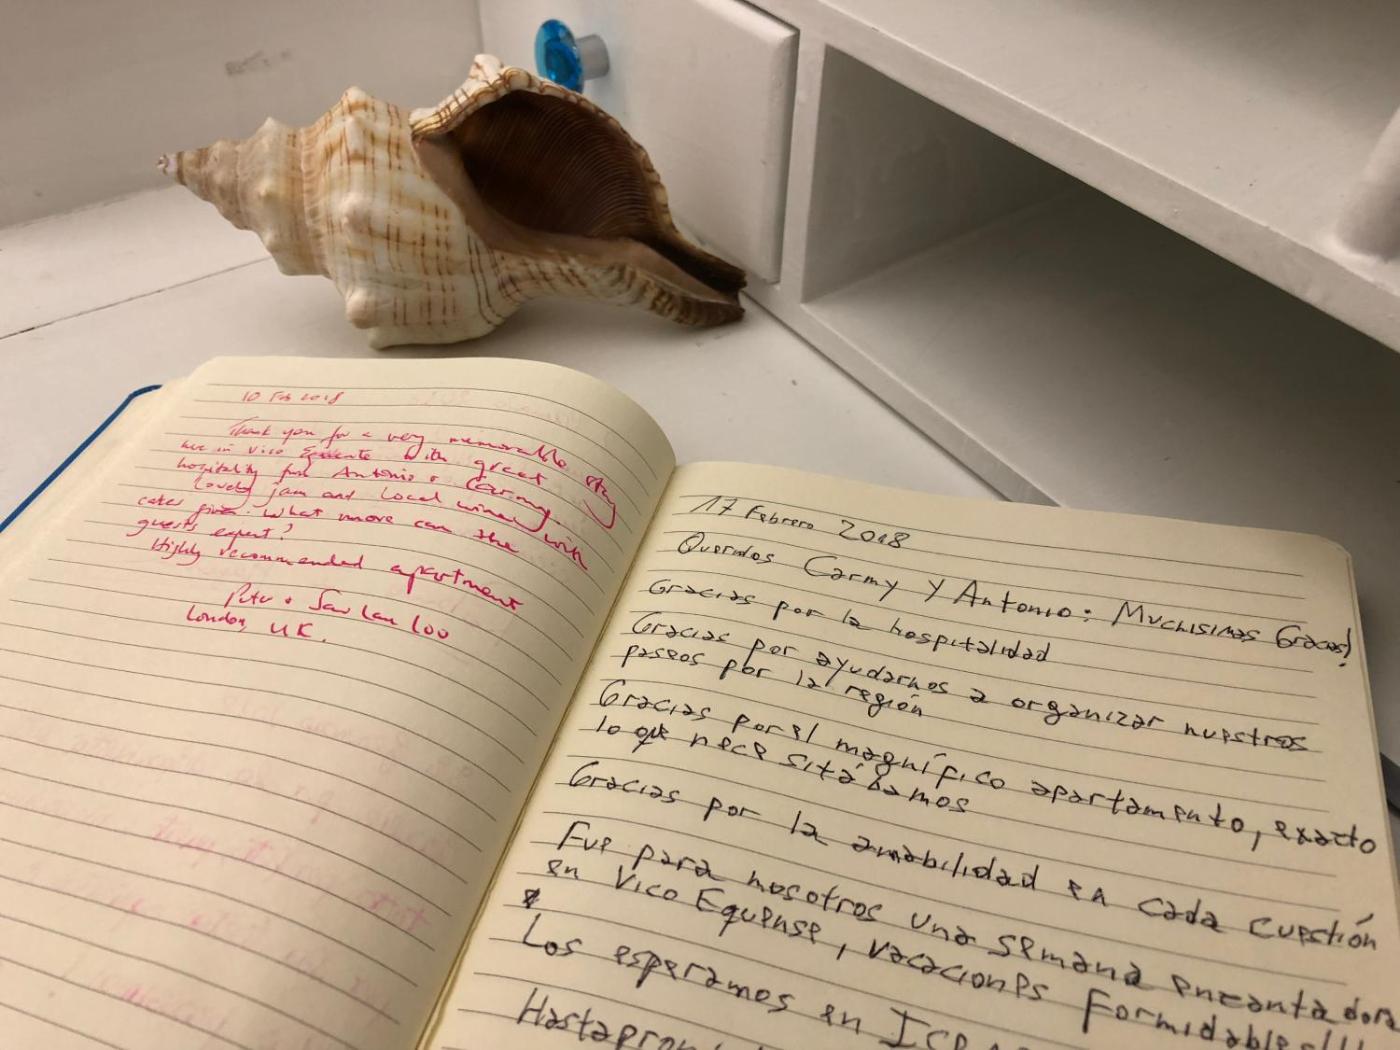 10 Feb 2018
Thank you for a very memorable stay
here in Vico Equente with great
hospitality from Antonio & Carmy.
Lovely jam and local wine, with
cakes given. What more can the
guests expect?
Highly recommended apartment
Peter & San Lan Loo
London, UK.
17 Febrero 2018
Queridos Carmy y Antonio: Muchisimas Gracias!
Gracias por la hospitalidad
Gracias por ayudarnos a organizar nuestros
paseos por la región
Gracias por el magnífico apartamento, exacto
lo que necesitábamos
Gracias por la amabilidad en cada cuestión
Fue para nosotros una semana encantadora
en Vico Equense, vacaciones formidables!!!
Los esperamos en
Hasta